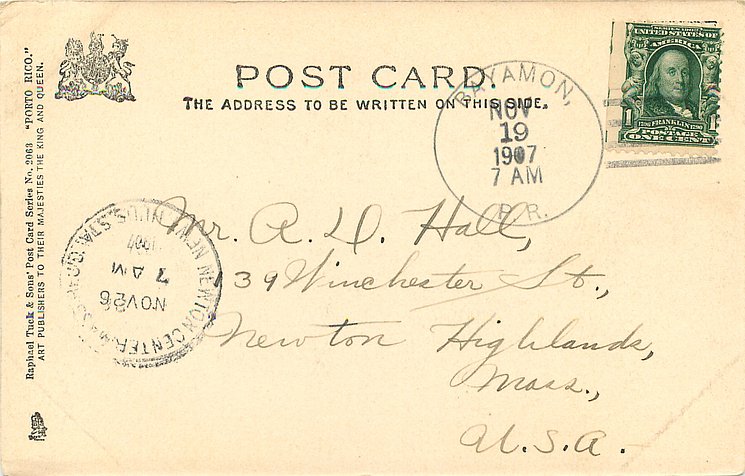 POST CARD.
THE ADDRESS TO BE WRITTEN ON THIS SIDE.
SERIES 1902
UNITED STATES OF
AMERICA
1 FRANKLIN 1
POSTAGE
ONE CENT
BAYAMON,
NOV
19
1907
7 AM
P. R.
Mr. A. D. Hall,
39 Winchester St.,
Newton Highlands,
Mass.,
U.S.A.
NEWTON CENTER
NOV 26
7 AM
1907
Raphael Tuck & Sons' Post Card Series No. 2063 "PORTO RICO."
ART PUBLISHERS TO THEIR MAJESTIES THE KING AND QUEEN.